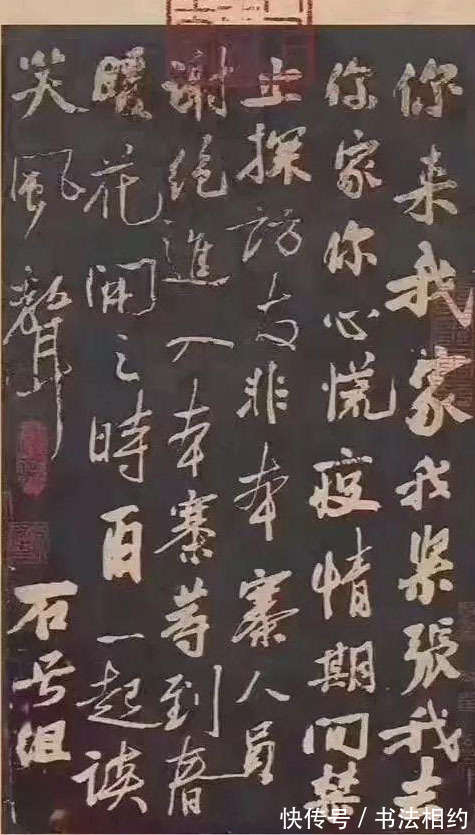 你来我家我紧張我去
你家你心慌疫情期间禁
止探訪友非本寨人員
謝绝進入本寨等到春
暖花開之時百一起谈
笑風聲
石号组
快传号 / 书法相约